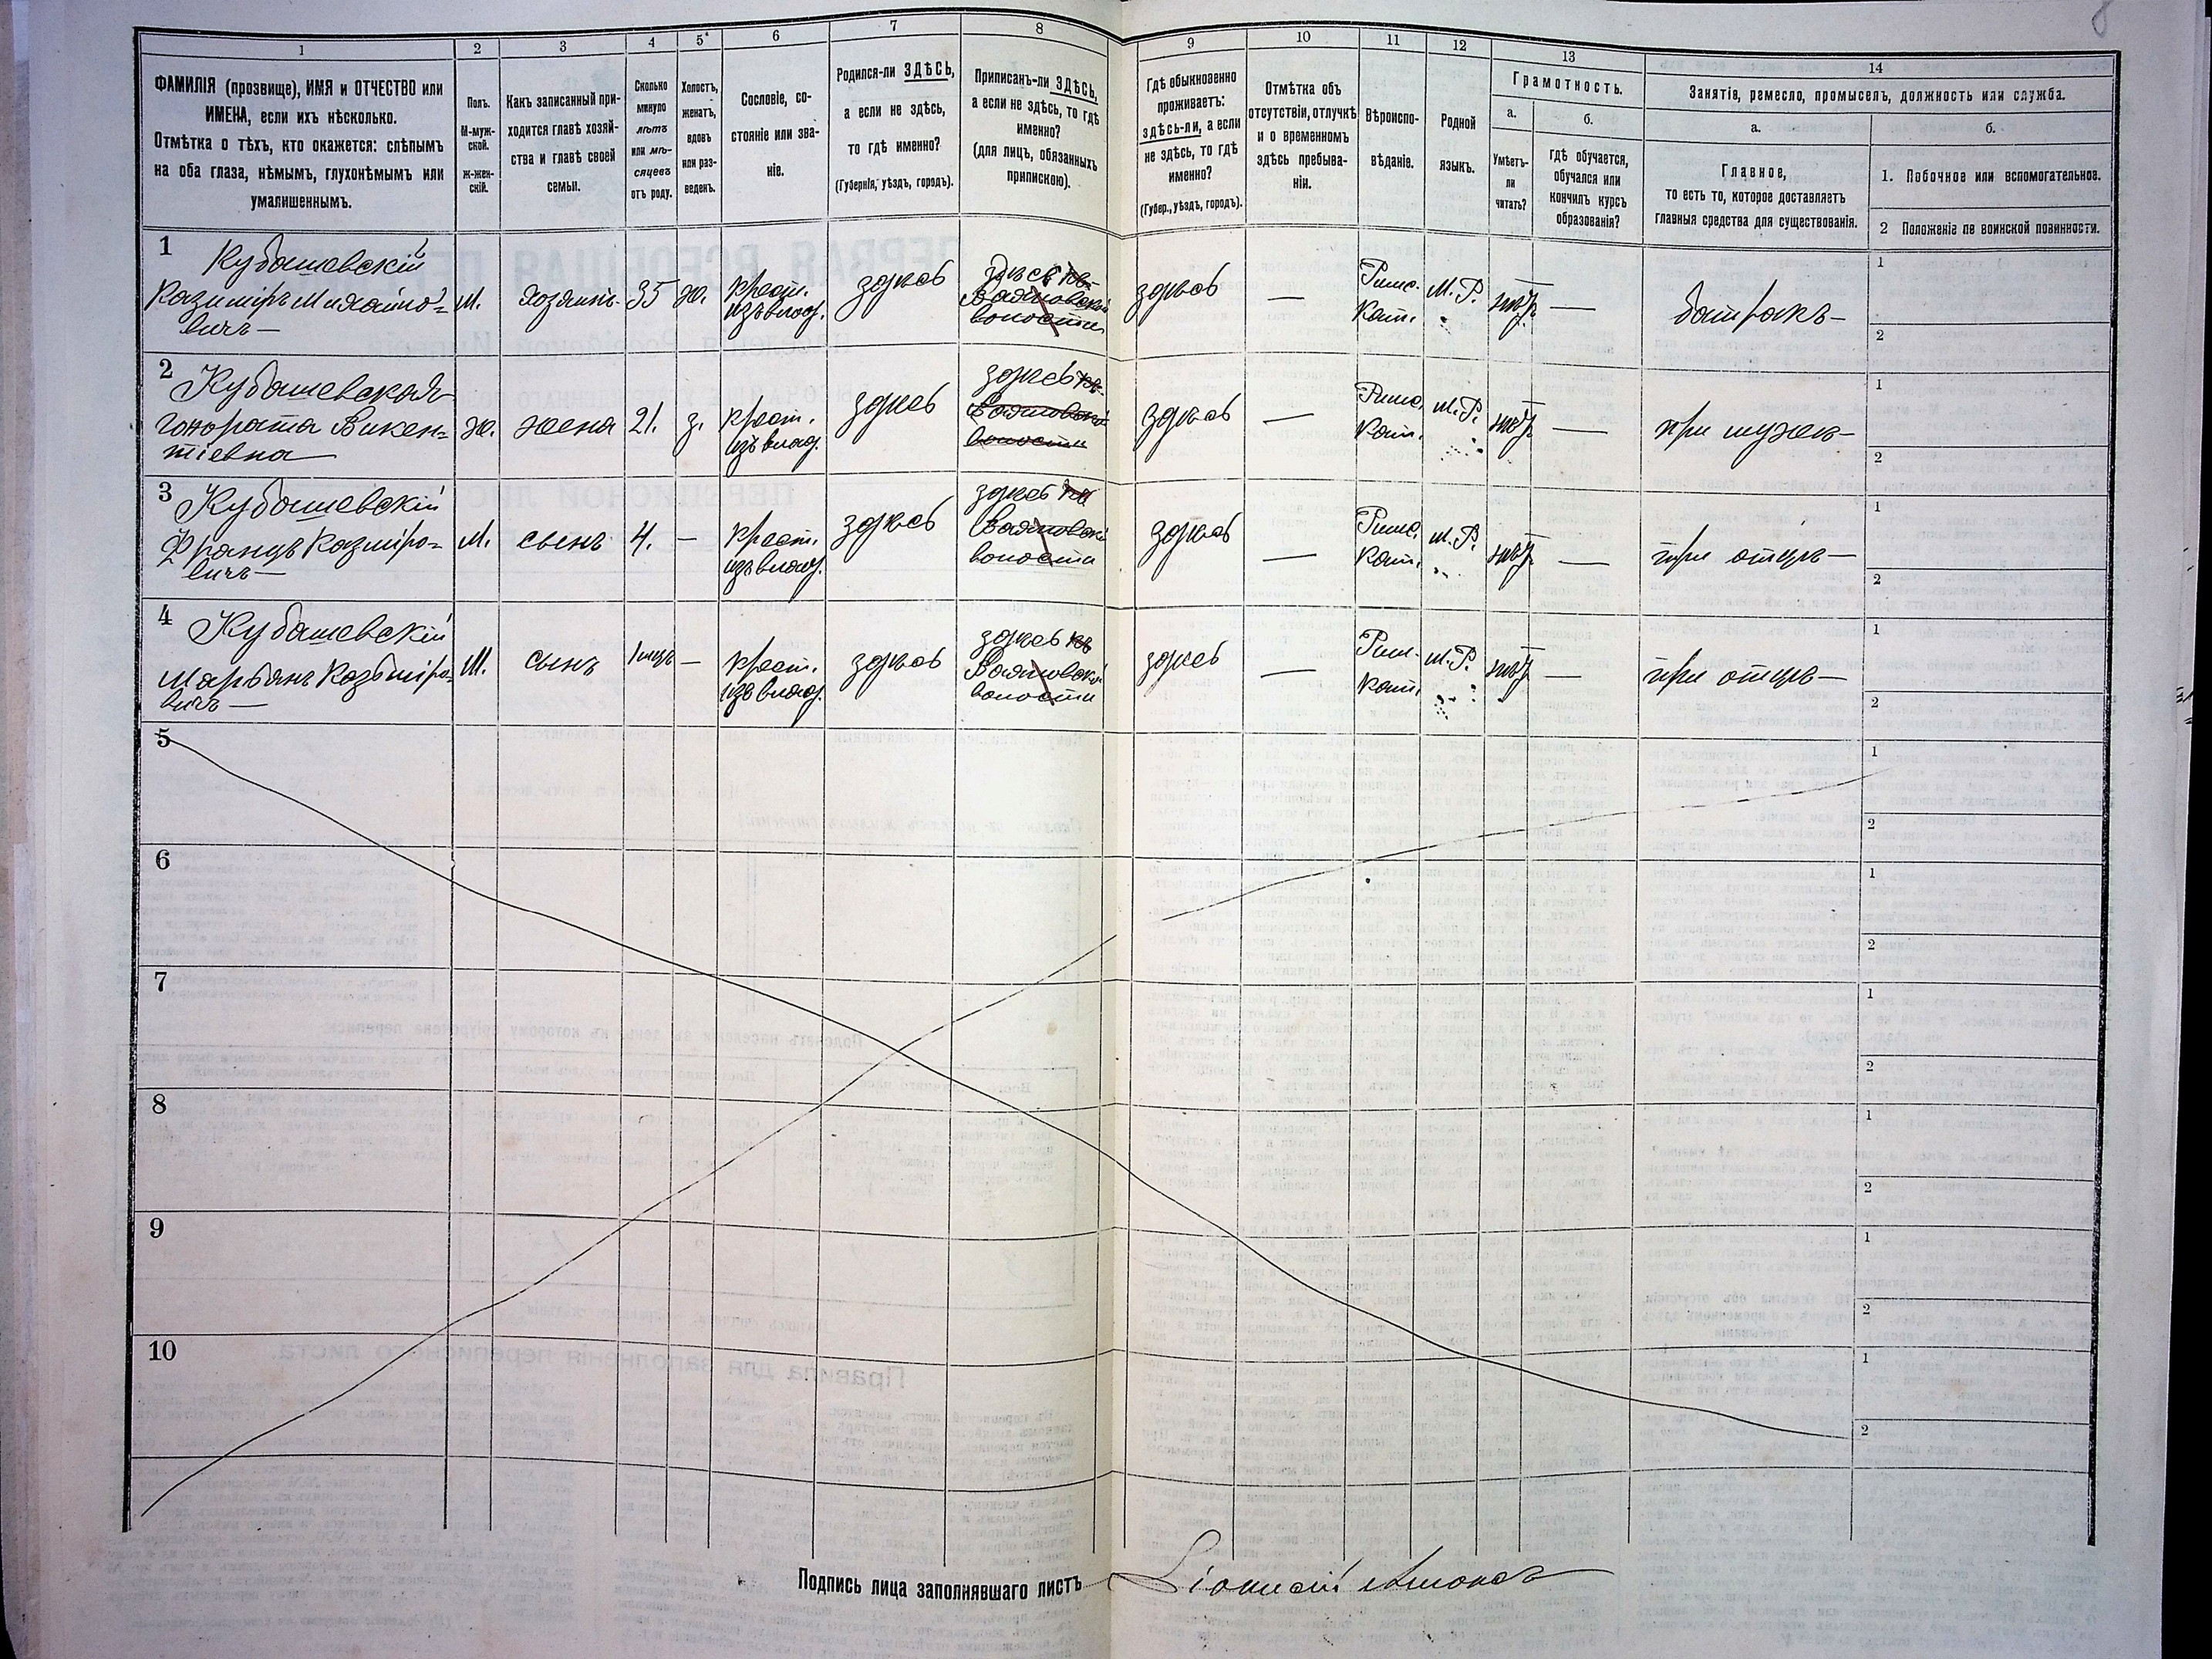 8
1
2
3
4
5
6
7
8
9
10
11
12
13
14
ФАМИЛІЯ (прозвище), ИМЯ и ОТЧЕСТВО или
ИМЕНА, если ихъ нѣсколько.
Отмѣтка о тѣхъ, кто окажется: слѣпымъ
на оба глаза, нѣмымъ, глухонѣмымъ или
умалишеннымъ.
Полъ.
М-муж-
ской.
ж-жен-
скій.
Какъ записанный при-
ходится главѣ хозяй-
ства и главѣ своей
семьи.
Сколько
минуло
лѣтъ
или мѣ-
сяцевъ
отъ роду.
Холостъ,
женатъ,
вдовъ
или раз-
веденъ.
Сословіе, со-
стояніе или зва-
ніе.
Родился-ли ЗДѢСЬ,
а если не здѣсь,
то гдѣ именно?
(Губернія, уѣздъ, городъ).
Приписанъ-ли ЗДѢСЬ,
а если не здѣсь, то гдѣ
именно?
(для лицъ, обязанныхъ
припискою).
Гдѣ обыкновенно
проживаетъ:
здѣсь-ли, а если
не здѣсь, то гдѣ
именно?
(Губер., уѣздъ, городъ).
Отмѣтка объ
отсутствіи, отлучкѣ
и о временномъ
здѣсь пребыва-
ніи.
Вѣроиспо-
вѣданіе.
Родной
языкъ.
Грамотность.
а.
Умѣетъ-
ли
читать?
б.
гдѣ обучается,
обучался или
кончилъ курсъ
образованія?
Занятія, ремесло, промыселъ, должность или служба.
а.
Главное,
то есть то, которое доставляетъ
главныя средства для существованія.
б.
1. Побочное или вспомогательное.
2 Положеніе по воинской повинности.
1
Кубашевскій
Казиміръ Михайло-
вичъ —
М.
хозяинъ
35
ж.
крест.
изъ влад.
здѣсь
здѣсь
волости
здѣсь
—
Римс.
Кат.
—
батракъ —
1
2
2
Кубашевская
Гонората Викен-
тіевна —
Ж.
жена
21.
з.
крест.
изъ влад.
здѣсь
здѣсь
волости
здѣсь
—
Римс.
Кат.
—
при мужѣ —
1
2
3
Кубашевскій
Францъ Казиміро-
вичъ —
М.
сынъ
4.
—
крест.
изъ влад.
здѣсь
здѣсь
волости
здѣсь
—
Римс.
Кат.
—
при отцѣ —
1
2
4
Кубашевскій
Марьянъ Казьміро-
вичъ —
М.
сынъ
—
крест.
изъ влад.
здѣсь
здѣсь
волости
здѣсь
—
Рим.
Кат.
—
при отцѣ —
1
2
5
1
2
6
1
2
7
1
2
8
1
2
9
1
2
10
1
2
Подпись лица заполнявшаго листъ